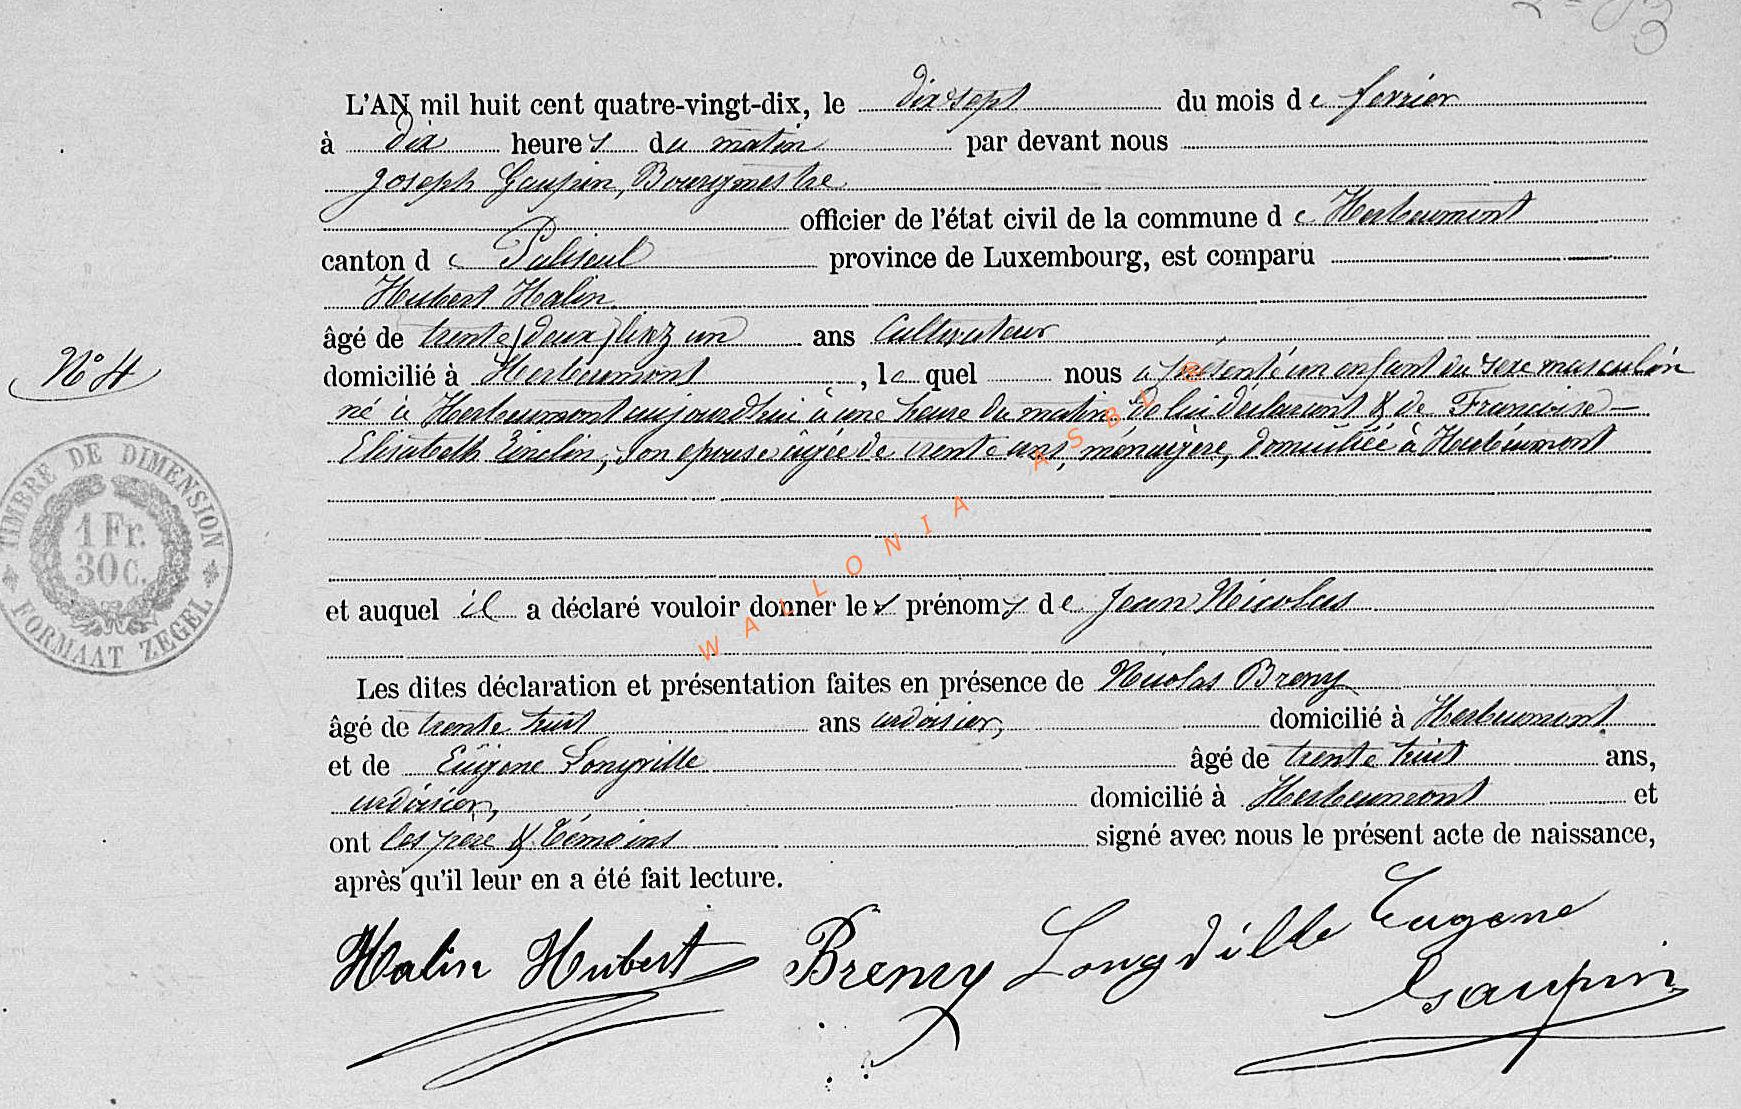 L'AN mil huit cent quatre-vingt-dix, le dix sept du mois de fevrier
à dix heures du matin par devant nous
Joseph Gaupin, Bourgmestre
officier de l'état civil de la commune de Herbeumont
canton de Paliseul province de Luxembourg, est comparu
Hubert Halin
âgé de trente (deux) lisez un ans Cultivateur
N° 4
domicilié à Herbeumont, lequel nous a présenté un enfant du sexe masculin
né à Herbeumont aujourd'hui à une heure du matin, de lui déclarant & de Francoise
Elisabeth, son epouse agée de trente ans, ménagère, domiciliée à Herbeumont
TIMBRE DE DIMENSION
1 Fr.
30 C.
FORMAAT ZEGEL
et auquel il a déclaré vouloir donner les prénoms de Jean Nicolas
Les dites déclaration et présentation faites en présence de Nicolas Bremy
âgé de trente huit ans ardoisier, domicilié à Herbeumont
et de Eugène Longville âgé de trente huit ans,
ardoisier, domicilié à Herbeumont et
ont les père & témoins signé avec nous le présent acte de naissance,
après qu'il leur en a été fait lecture.
Halin Hubert Bremy Longville Eugene
Gaupin
WALLONIA ASBL ©